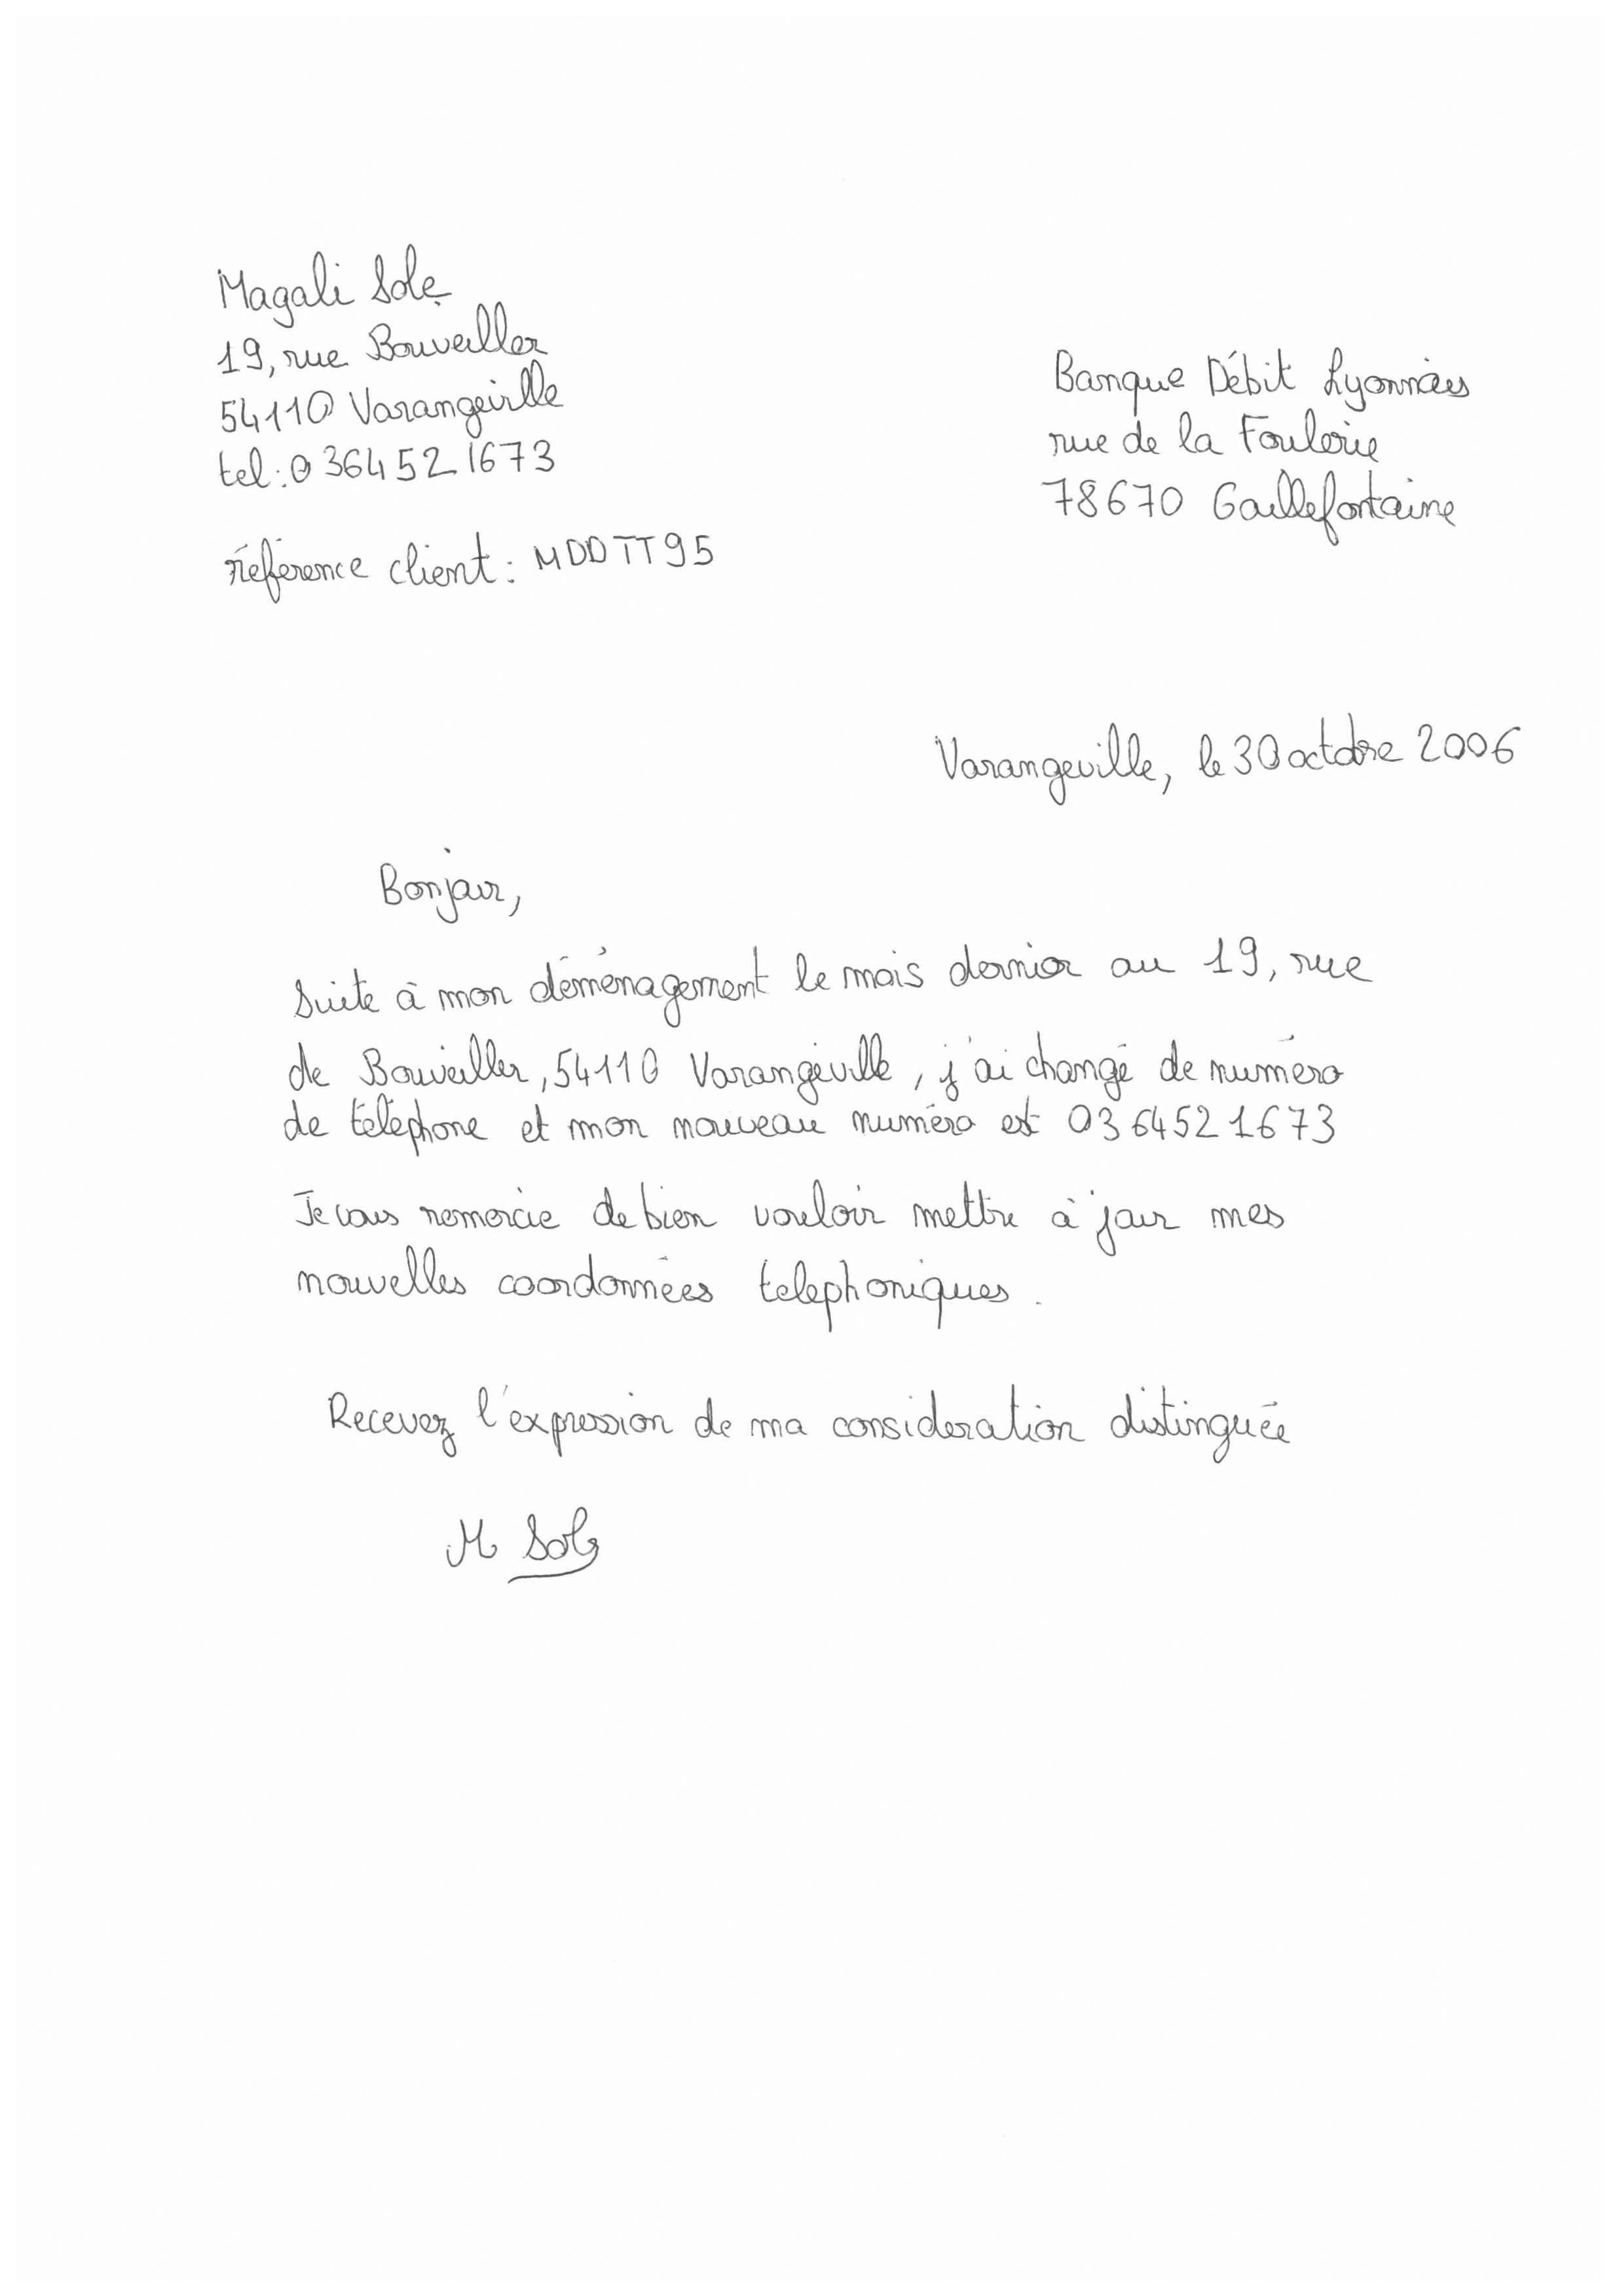 Magali Sole
19, rue Bouveiller
54110 Varangeville
tel: 0364521673
référence client : MDDTT95
Banque Débit Lyonnais
rue de la Foulerie
78670 Gaillefontaine
Varangeville, le 30 octobre 2006
Bonjour,
Suite à mon déménagement le mois dernier au 19, rue
de Bouveiller, 54110 Varangéville, j'ai changé de numéro
de téléphone et mon nouveau numéro est 0364521673
Je vous remercie de bien vouloir mettre à jour mes
nouvelles coordonnées telephoniques.
Recevez l'expression de ma consideration distinguée
M Sole